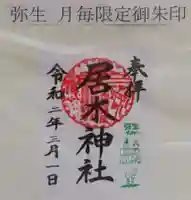 弥生 月毎限定御朱印
奉拝
居木神社
令和二年三月一日
弥生